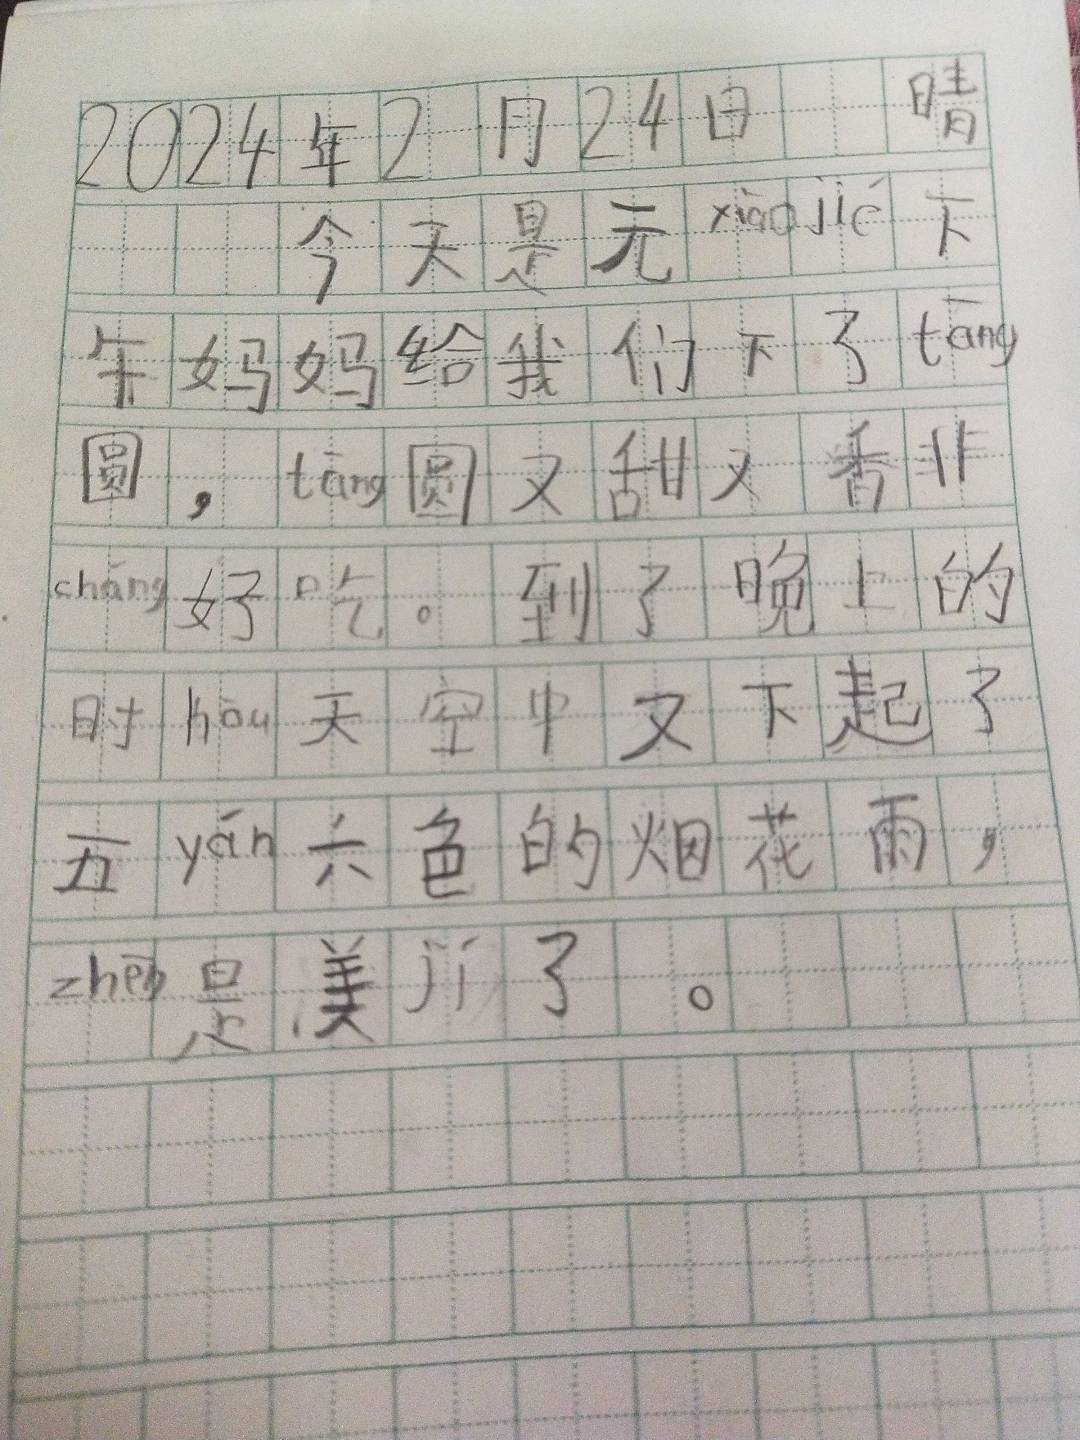 2024年2月24日 晴
今天是元xiāojié下
午妈妈给我们下了tāng
圆，tāng圆又甜又香非
cháng好吃。到了晚上的
时hòu天空中又下起了
五yán六色的烟花雨，
zhēn是美jí了。